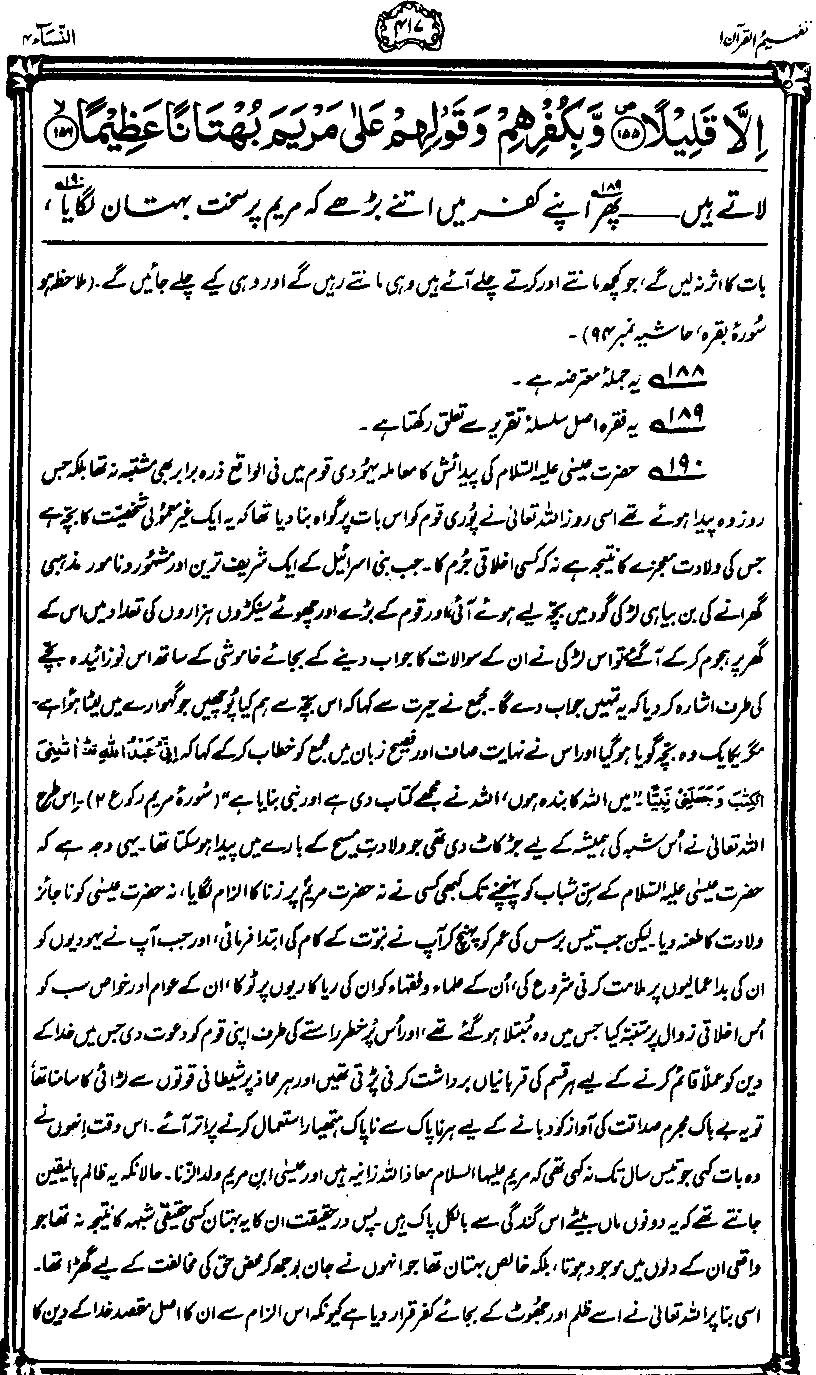 تفہیم القرآن ۱
۴۱۷
النساء ۴
اِلَّا قَلِيْلًا ﴿۱۵۵﴾ وَّبِكُفْرِهِمْ وَقَوْلِهِمْ عَلٰى مَرْيَمَ بُهْتَانًا عَظِيْمًا ﴿۱۵۶﴾
لاتے ہیں ــــــ پھر۱۸۹ اپنے کفر میں اتنے بڑھے کہ مریم پر سخت بہتان لگایا۱۹۰،
بات کا اثر نہ لیں گے، جو کچھ مانتے اور کرتے چلے آئے ہیں وہی مانتے رہیں گے اور وہی کیے چلے جائیں گے۔ (ملاحظہ ہو
سُورۂ بقرہ، حاشیہ نمبر ۹۴)۔
۱۸۸ یہ جملۂ معترضہ ہے۔
۱۸۹ یہ فقرہ اصل سلسلۂ تقریر سے تعلق رکھتا ہے۔
۱۹۰ حضرت عیسٰی علیہ السّلام کی پیدائش کا معاملہ یہُودی قوم میں فی الواقع ذرہ برابر بھی مشتبہ نہ تھا بلکہ جس
روز وہ پیدا ہوئے تھے اسی روز اللہ تعالیٰ نے پُوری قوم کو اس بات پر گواہ بنا دیا تھا کہ یہ ایک غیر معمُولی شخصیّت کا بچّہ ہے
جس کی ولادت معجزے کا نتیجہ ہے نہ کہ کسی اخلاقی جُرم کا۔ جب بنی اسرائیل کے ایک شریف ترین اور مشہُور و نامور مذہبی
گھرانے کی بن بیاہی لڑکی گود میں بچّہ لیے ہوئے آئی، اور قوم کے بڑے اور چھوٹے سینکڑوں ہزاروں کی تعداد میں اس کے
گھر پر ہجوم کرکے آگئے، تو اس لڑکی نے ان کے سوالات کا جواب دینے کے بجائے خاموشی کے ساتھ اس نوزائیدہ بچّے
کی طرف اشارہ کر دیا کہ یہ تمہیں جواب دے گا۔ مجمع نے حیرت سے کہا کہ اس بچّے سے ہم کیا پُوچھیں جو گہوارے میں لیٹا ہؤا ہے۔
مگر یکایک وہ بچّہ گویا ہوگیا اور اس نے نہایت صاف اور فصیح زبان میں مجمع کو خطاب کرکے کہا کہ اِنِّیْ عَبْدُ اللهِ اٰتٰنِیَ
الْکِتٰبَ وَجَعَلَنِیْ نَبِیًّا، "میں اللہ کا بندہ ہوں، اللہ نے مجھے کتاب دی ہے اور نبی بنایا ہے" (سُورۂ مریم رکوع ۲)۔ اِس طرح
اللہ تعالیٰ نے اُس شبہ کی ہمیشہ کے لیے جڑ کاٹ دی تھی جو ولادتِ مسیح کے بارے میں پیدا ہوسکتا تھا۔ یہی وجہ ہے کہ
حضرت عیسٰی علیہ السّلام کے سِنِ شباب کو پہنچنے تک کبھی کسی نے نہ حضرت مریمؑ پر زنا کا الزام لگایا، نہ حضرت عیسٰی کو ناجائز
ولادت کا طعنہ دیا۔ لیکن جب تیس برس کی عمر کو پہنچ کر آپ نے نبوّت کے کام کی ابتدا فرمائی، اور جب آپ نے یہودیوں کو
ان کی بداعمالیوں پر ملامت کرنی شروع کی، اُن کے علماء و فقہاء کو ان کی ریاکاریوں پر ٹوکا، ان کے عوام اور خواص سب کو
اُس اخلاقی زوال پر متنبہ کیا جس میں وہ مُبتلا ہوگئے تھے، اور اُس پُرخطر راستے کی طرف اپنی قوم کو دعوت دی جس میں خدا کے
دین کو عملاً قائم کرنے کے لیے ہر قسم کی قربانیاں برداشت کرنی پڑتی تھیں اور ہر محاذ پر شیطانی قوتوں سے لڑائی کا سامنا تھا،
تو یہ بے باک مجرم صداقت کی آواز کو دبانے کے لیے ہر ناپاک سے ناپاک ہتھیار استعمال کرنے پر اتر آئے۔ اس وقت اِنہوں نے
وہ بات کہی جو تیس سال تک نہ کہی تھی کہ مریم علیہا السلام معاذ اللہ زانیہ ہیں اور عیسٰی ابن مریم ولد الزّنا۔ حالانکہ یہ ظالم بالیقین
جانتے تھے کہ یہ دونوں ماں بیٹے اس گندگی سے بالکل پاک ہیں۔ پس درحقیقت ان کا یہ بہتان کسی حقیقی شبہہ کا نتیجہ نہ تھا جو
واقعی ان کے دلوں میں موجود ہوتا، بلکہ خالص بہتان تھا جو انہوں نے جان بوجھ کر محض حق کی مخالفت کے لیے گھڑا تھا۔
اسی بنا پر اللہ تعالیٰ نے اسے ظلم اور جھُوٹ کے بجائے کفر قرار دیا ہے کیونکہ اس الزام سے ان کا اصل مقصد خدا کے دین کا